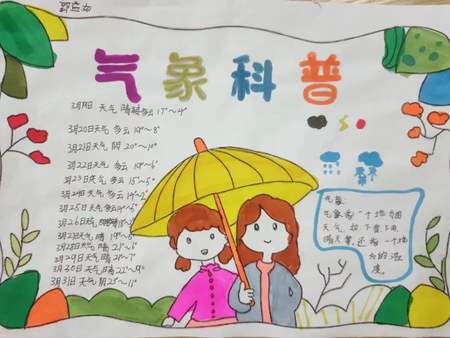 气象科普
3月19日 天气 晴转多云 17°~4°
3月20日天气 多云 19°~8°
3月21日天气 阴 20°~10°
3月22日天气 多云 19°~6°
3月23日天气 多云 15°~5°
3月24日天气 多云 14°~2°
3月25日天气多云14°~6°
3月26日天气
3月27日天气 晴 19°~
3月28日天气 晴 21°~6°
3月29日天气 晴 21°~7°
3月30日 天气晴22°~9°
3月31日 天气 阴23°~11°
气象
气象看一个地方的
天气,如下雪下雨
晴天等,还有一个地
方的温
度。